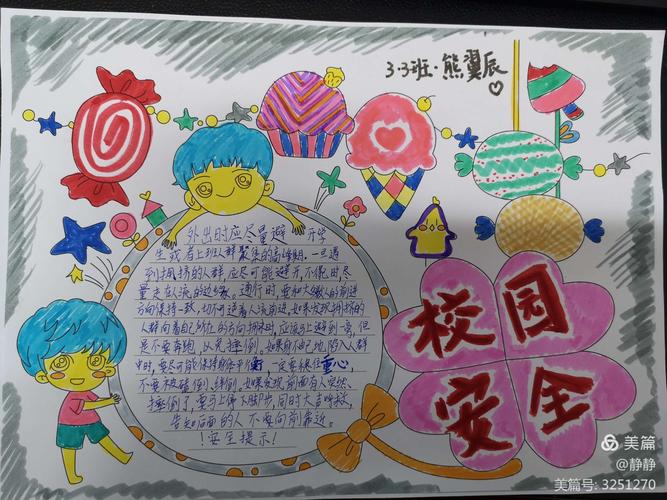 3-3班·熊翼辰
外出时应尽量避开学
生或者上班人群聚集的高峰期,一旦遇
到拥挤的人群,应尽可能避开,不能时,尽
量走在人流的边缘。通行时,要和大多数人的前进
方向保持一致,切不可逆着人流前进,如果发现拥挤的
人群向着自己所在的方向拥来时,应该马上避到一旁,但
是不要奔跑,以免摔倒,如果自己不地陷入人群
中时,要尽可能保持身体平衡,一定要稳住重心,
不要被碰倒、绊倒,如果发现前面有人突然
摔倒了,要马上停下脚步,同时大声呼救,
告知后面的人不要向前靠近。
!安全提示!
校园
安全
美篇
@静静
美篇号: 3251270